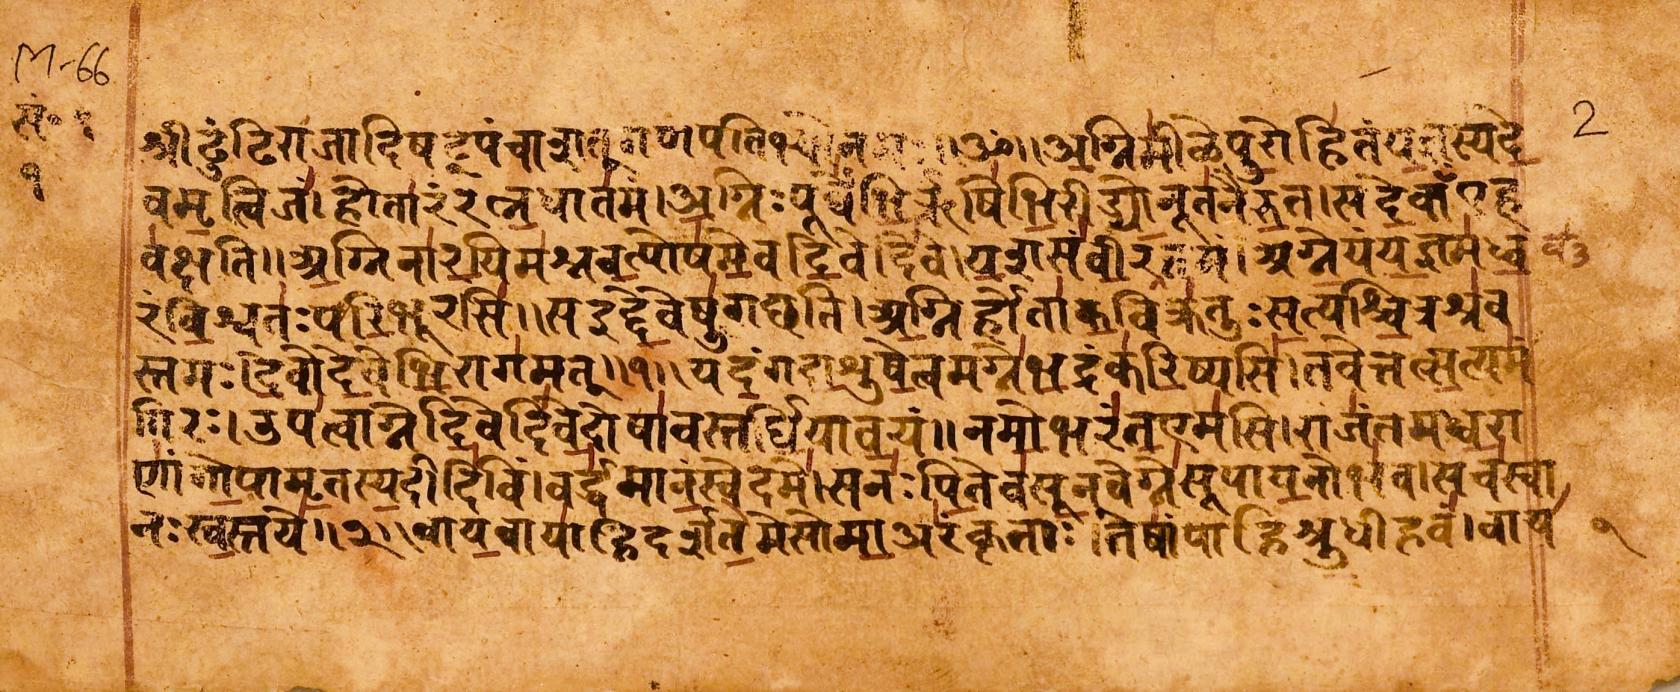 M-66
सं॰ १
१
2
श्रीढुंढिराजादिषट्पंचाशत् गणपतिभ्यो नमः ॥ॐ॥ अग्निमीळेपुरोहितंयज्ञस्यदे
वमृत्विजं। होतारंरत्नधातमं। अग्निःपूर्वेभिर्ऋषिभिरीड्योनूतनैरुत। सदेवाँएह
वक्षति॥ अग्निनारयिमश्नवत्पोषमेवदिवेदिवे। यशसंवीरवत्तमं। अग्नेयंयज्ञमध्व
रंविश्वतःपरिभूरसि॥ सइद्देवेषुगछति। अग्निर्होताकविक्रतुःसत्यश्चित्रश्रव
स्तमः। देवोदेवेभिरागमत्॥१॥ यदंगदाशुषेत्वमग्नेभद्रंकरिष्यसि। तवेत्तत्सत्यमं
गिरः। उपत्वाग्नेदिवेदिवेदोषावस्तर्धियावयं॥ नमोभरंतएमसि। राजंतमध्वरा
णांगोपामृतस्यदीदिविं। वर्द्धमानंस्वेदमे। सनःपितेवसूनवेग्नेसूपायनोभव। सचस्वा
नःस्वस्तये॥२॥ वायवायाहिदर्शतेमेसोमाअरंकृताः। तेषांपाहिश्रुधीहवं। वाय
१